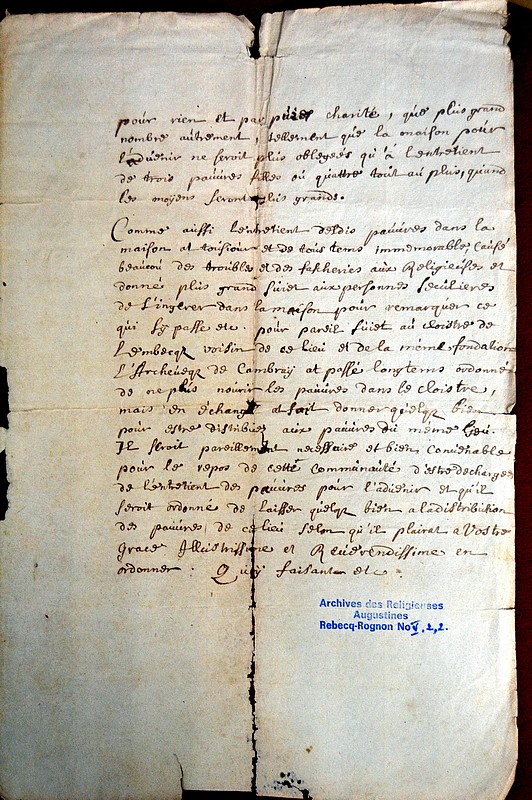 pour rien et par pure charité, que plus grand
nombre autrement, tellement que la maison pour
l'aduenir ne seroit plus obligees qu'à l'entretient
de trois pauures filles ou quattre tout au plus, quand
les moyens seront plus grands.
Comme aussi l'entretient desdis pauures dans la
maison at tousiour et de tous tems immemorable causé
beaucou des troubles et des fascheries aux Religieuses et
donné plus grand suiet aux personnes seculieres
de s'ingerer dans la maison pour remarquer ce
qui s'y passe etc. pour pareil suiet au cloistre de
Lembecq voisin de ce lieu et de la meme fondation
L'Archeuesq de Cambray at passé longtems ordonné
de ne plus nourir les pauures dans le cloistre,
mais en échange at fait donner quelq bien
pour estre distribué aux pauures du meme lieu.
Il seroit pareillement necessaire et bien conuenable
pour le repos de cette communauté d'estre decharges
de l'entretient des pauures pour l'aduenir et qu'il
seroit ordonné de laisser quelq bien a la distribution
des pauures de ce lieu selon qu'il plairat a Vostre
Grace Illustrissime et Reuerendissime en
ordonner. Quoy faisant etc.
Archives des Religieuses
Augustines
Rebecq-Rognon No V, 2, 2.